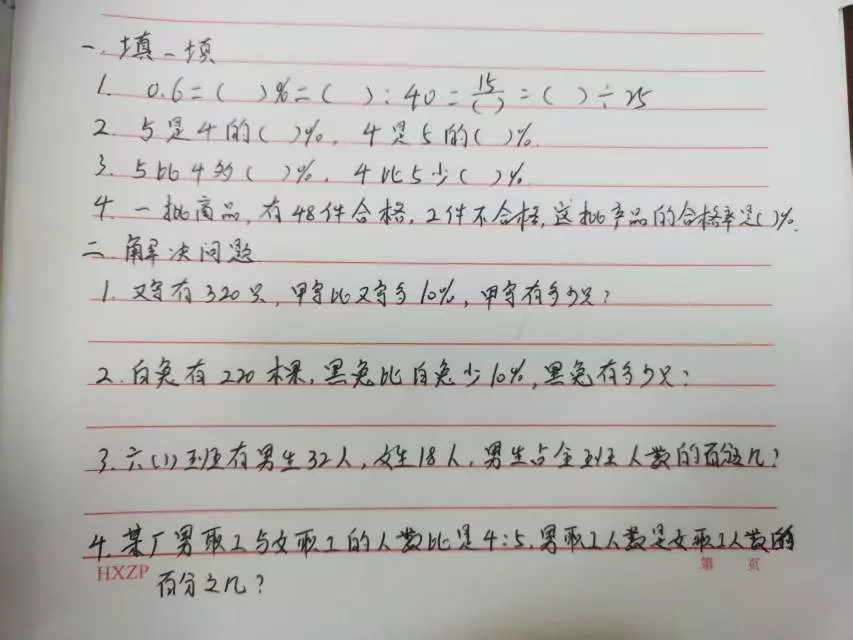 一.填一填
1. 0.6=( )%=( ):40=15/( )=( )÷25
2. 5是4的( )%, 4是5的( )%.
3. 5比4多( )%, 4比5少( )%.
4. 一批商品,有48件合格,2件不合格,这批产品的合格率是( )%.
二.解决问题
1.又字有320只,甲字比又字多10%,甲字有多少只?
2.白兔有220棵,黑兔比白兔少10%,黑兔有多少只?
3.六(1)班有男生32人,女生18人,男生占全班人数的百分之几?
4.某厂男职工与女职工的人数比是4:5,男职工人数是女职工人数的
HXZP 第 页
百分之几?